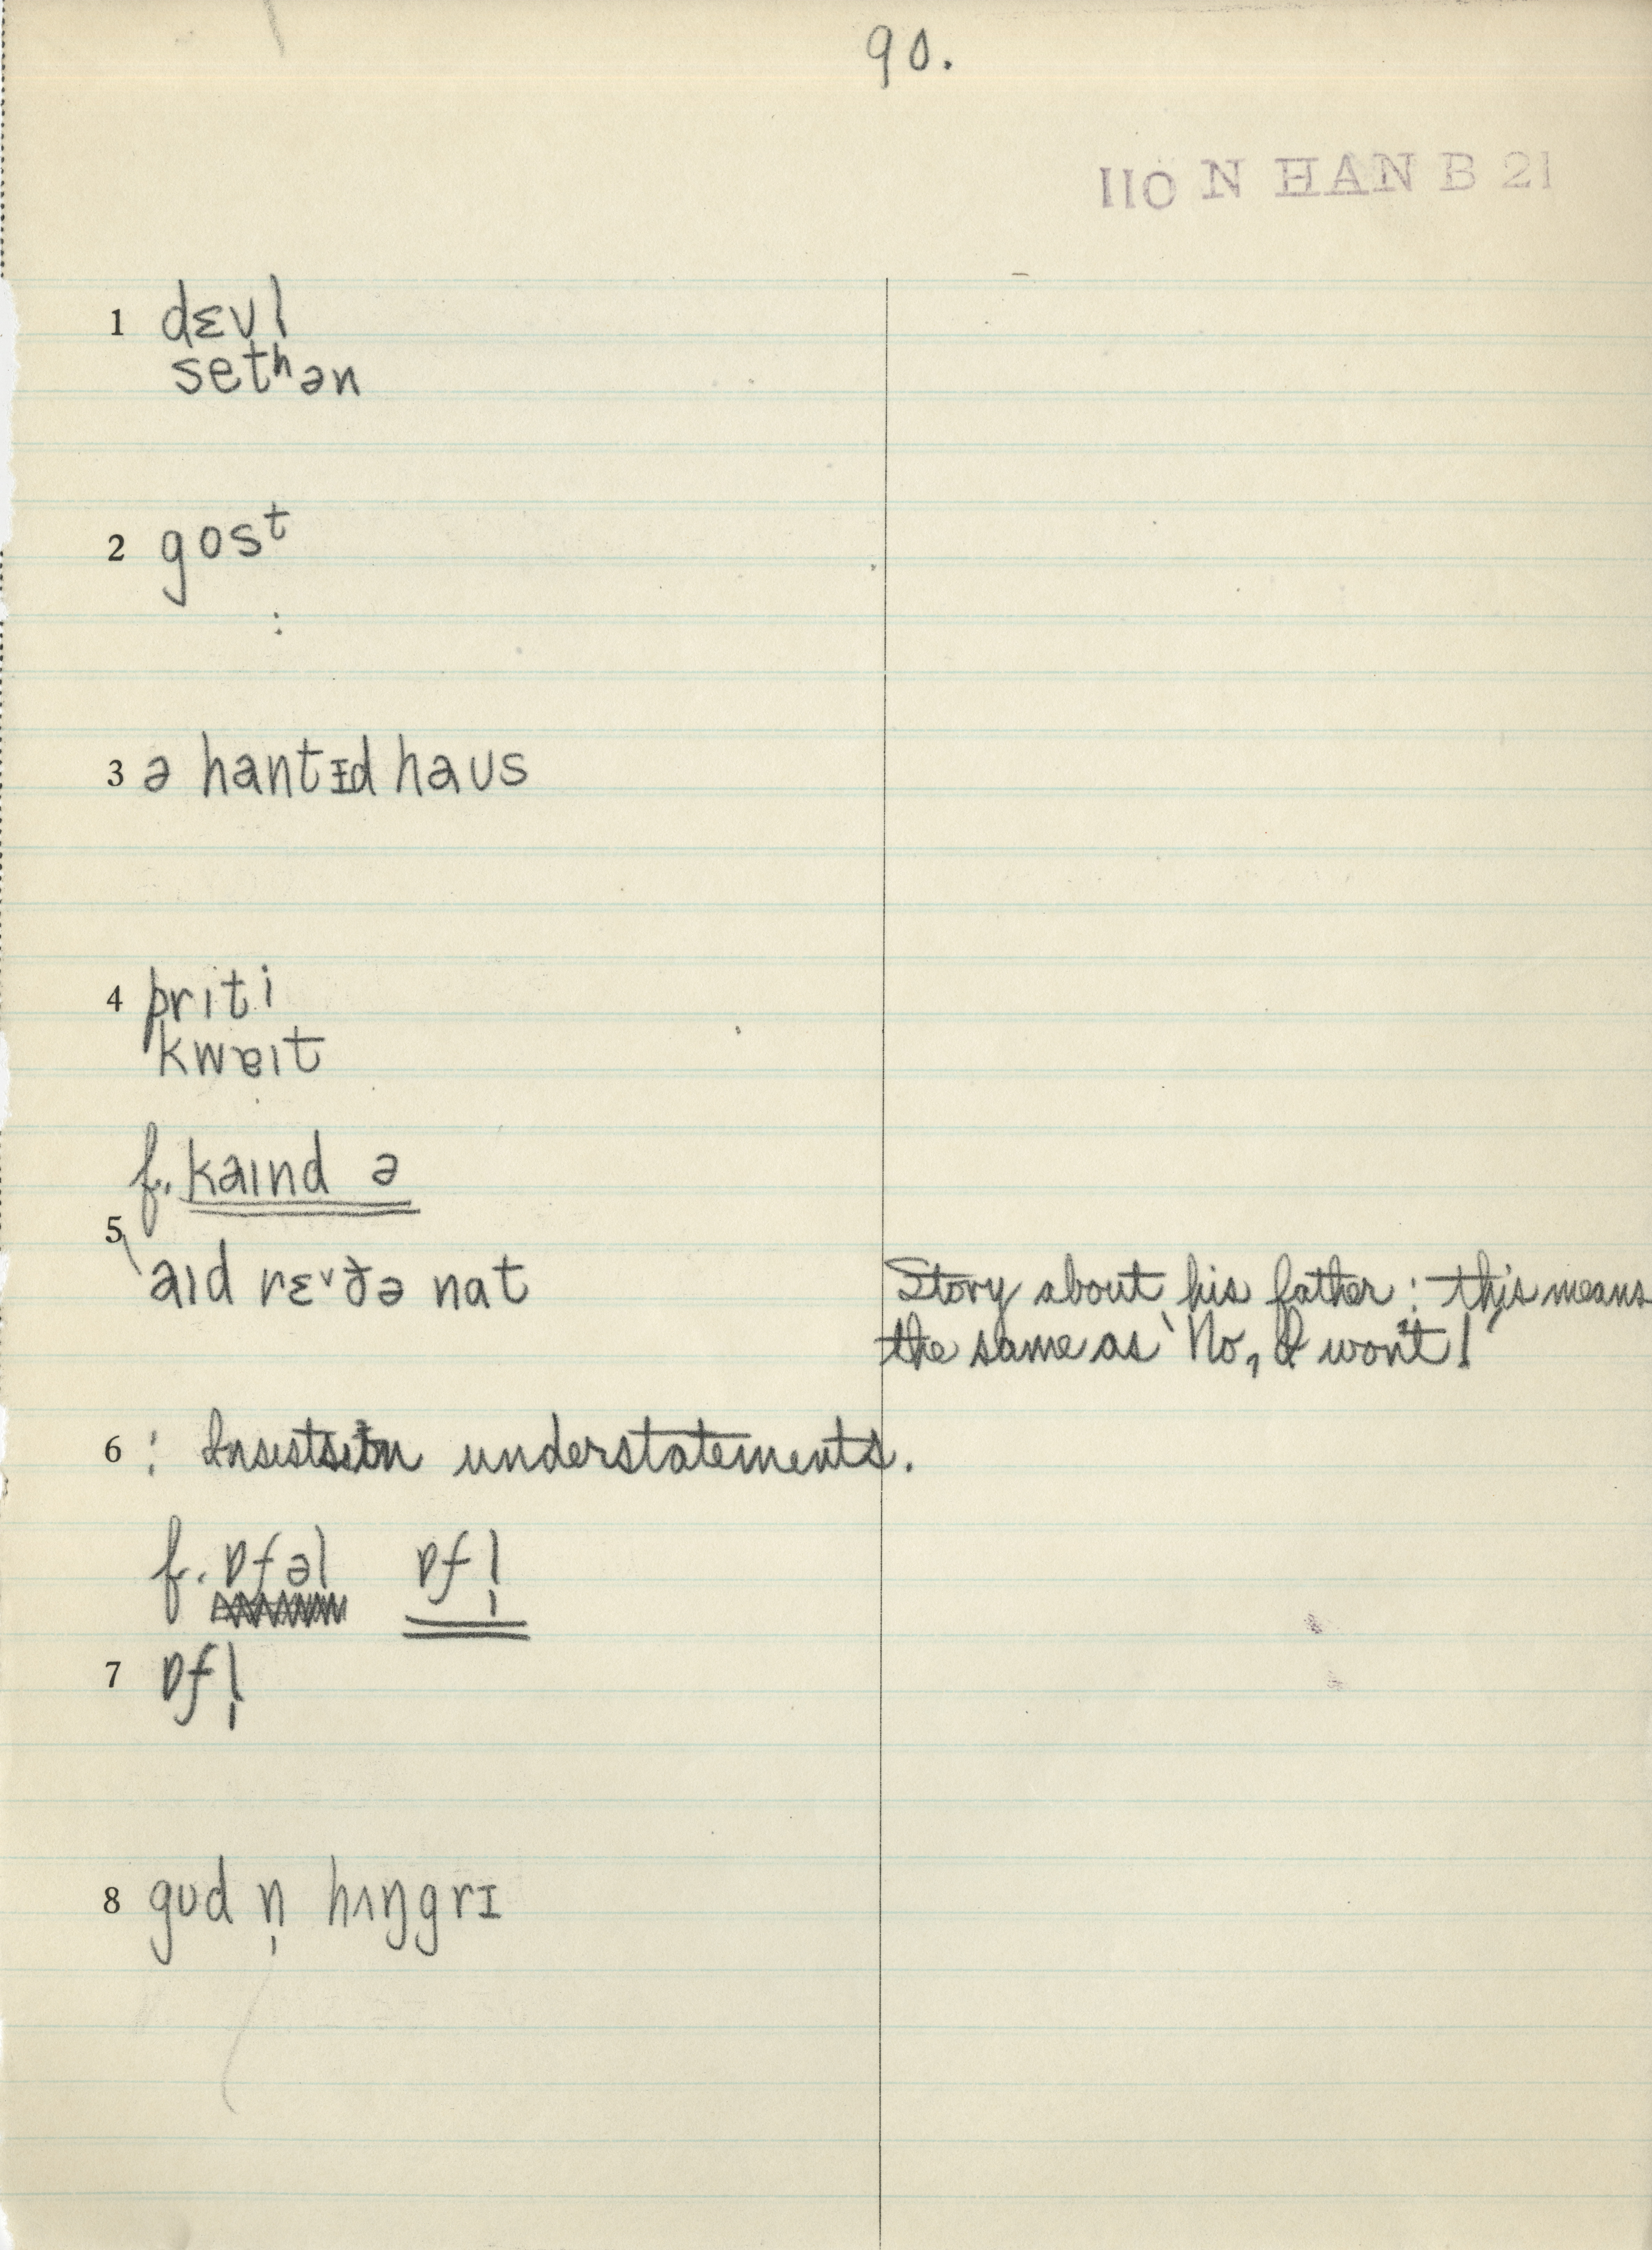 90.
110 N HAN B 21
1 dɛvl
setʰən
2 gosᵗ
:
3 ə hantɪd haus
4 prɪti
kwɐɪt
f. kaɪnd ə
5
aɪd rɛᵛðə nat
Story about his father: 'this means
the same as 'No, I won't!'
6 : Insists on understatements.
f. ɒfəl ɒfl̩
7 ɒfl̩
8 gʊd n̩ hʌŋgrɪ